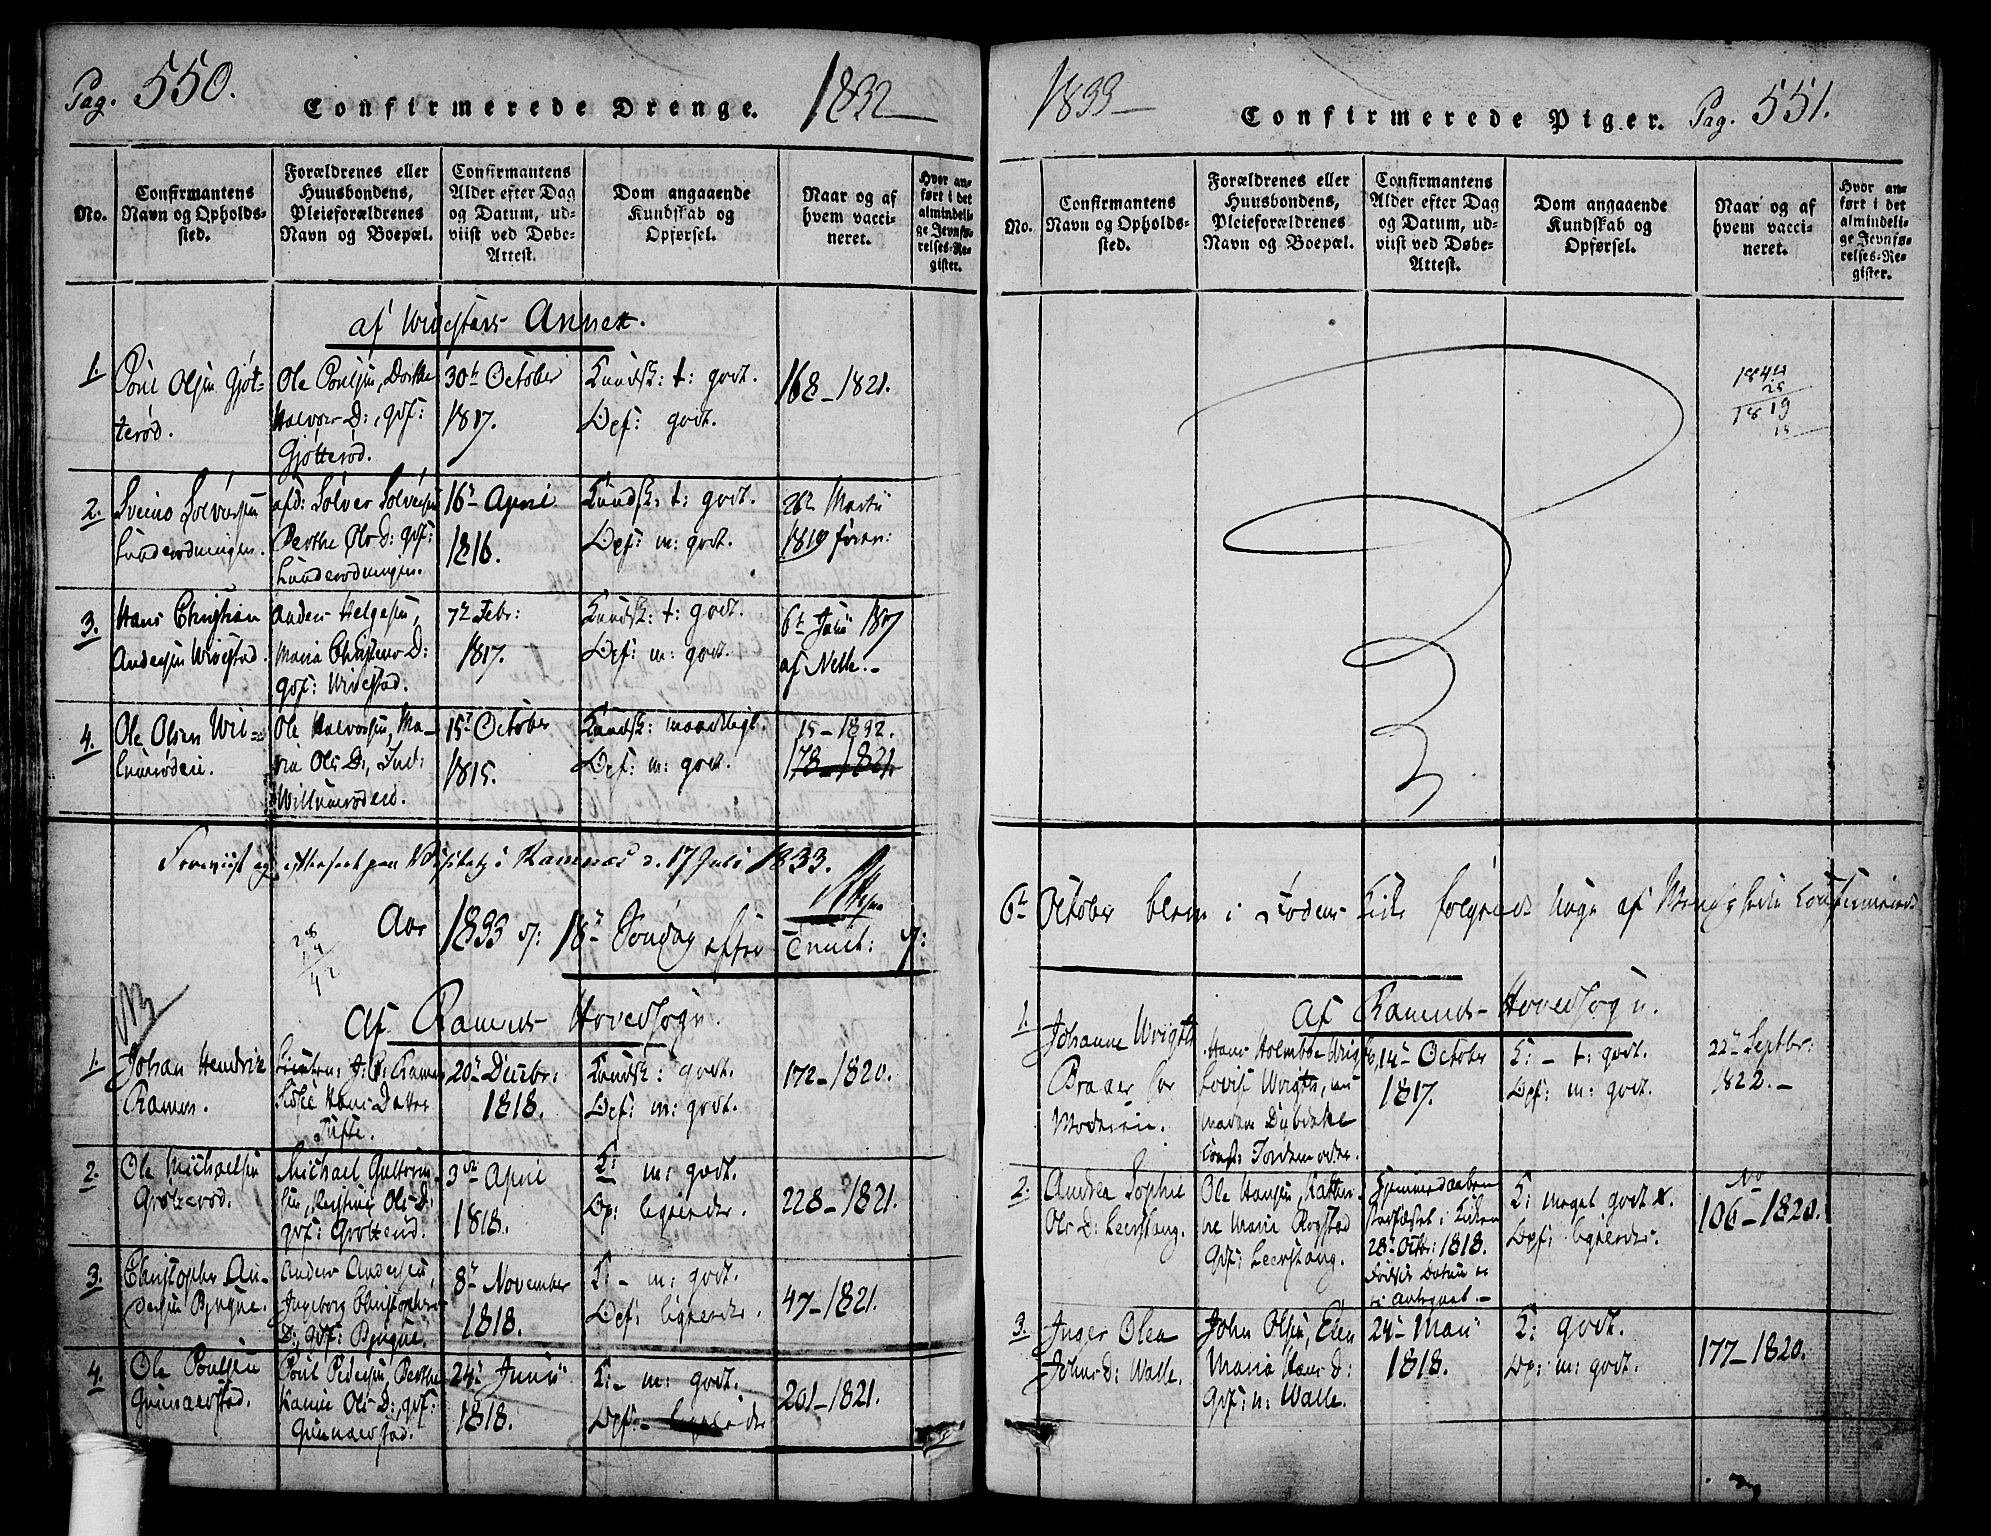 Pag. 550.
Confirmerede Drenge.
1832
No.
Confirmantens
Navn og Opholds-
sted.
Forældrenes eller
Huusbondens,
Pleieforældrenes
Navn og Boepæl.
Confirmantens
Alder efter Dag
og Datum, ud-
viist ved Døbe-
Attest.
Dom angaaende
Kundskab og
Opførsel.
Naar og af
hvem vacci-
neret.
Hvor an-
ført i det
almindeli-
ge Jevnfø-
relses-Re-
gister.
af Wivestad Annex.
1.
Poul Olsen Gjøt-
terød.
Ole Poulsen, Dorthe
Halvors D:, gvf:
Gjøtterød.
30te October
1817.
Kundsk: t: godt.
Opf: godt.
168_1821.
2.
Svend Sølversen
afd: Sølver Sølversen
Berthe Ols D: gvf:
16de April
1816.
Kundsk: t: godt.
Opf: m: godt.
26de Martii
1819
3.
Hans Christian
Andersen Wivestad.
Anders Helgesen,
Maria Christens D:
gvf: Wivestad.
7de Febr:
1817.
Kundsk: t: godt.
Opf: m: godt.
af Nelle._
4.
Ole Olsen Wil-
Ole Halvorsen, Ma-
ria Ols D:, Ind:
15de October
1815.
Kundsk: maadeligt.
Opf: m: godt.
15_1832.
178_1821.
Foreviist og efterseet paa Visitatz i Ramnes d. 17 Juli 1833.
Aar 1833 d: 18de Søndag efter Trinit: d:
NB
Af Ramnes Hovedsogn.
1.
Johan Hendrik
Ramm.
Sophie Hans Datter
Tufte.
20de Decbr:
1818.
Kundsk: godt.
Opf: m: godt.
172_1820.
2.
Ole Michaelsen
Michael Guttorm-
sen, Kirstine Ols D:
3die April
1818.
K: m: godt.
Op: ligeledes.
228_1821.
3.
Christopher An-
dersen Bjugne.
Anders Andersen,
Ingeborg Christophers
D:, gvf: Bjugne.
8de November
1818.
K:_ m: godt.
Opf: ligeledes.
47_1821.
4.
Ole Poulsen
Gunnarstad.
Poul Pedersen, Berthe
Karine Ols D:, gvf:
Gunnarstad.
24de Junii
1818.
K:_ m: godt.
Opf:_ ligeledes
201_1821.
1833
Confirmerede Piger.
Pag. 551.
No.
Confirmantens
Navn og Opholds-
sted.
Forældrenes eller
Huusbondens,
Pleieforældrenes
Navn og Boepæl.
Confirmantens
Alder efter Dag
og Datum, ud-
viist ved Døbe-
Attest.
Dom angaaende
Kundskab og
Opførsel.
Naar og af
hvem vacci-
neret.
Hvor an-
ført i det
almindeli-
ge Jevnfø-
relses-Re-
gister.
1844
25
1819
15
6te October bleve i Fodens Kirke følgende Unge af Menigheden Confirmerede
Af Ramnes Hovedsogn.
1.
Johanne Wrigth
Hans Holmboe Wrigth,
Lovise Wrigth, nu
14de October
1817.
K: _ t: godt.
Opf: m: godt.
22de Septbr:
1822._
2.
Andrea Sophie
Ols D: Leerstang.
Ole Hansen, Kathri-
ne Maria Rogstad
Gvf: Leerstang.
Hjemmedaaben
stadfæstet i Kirken
28de Octbr: 1818.
K: meget godt &.
Opf: ligeledes.
No
106_1820.
3.
Inger Olea
Johns D: Walle.
John Olsen, Elen
Maria Hans D:
Gvf: n: Walle.
24de Maii
1818.
K: godt.
Op: m: godt.
177_1820.